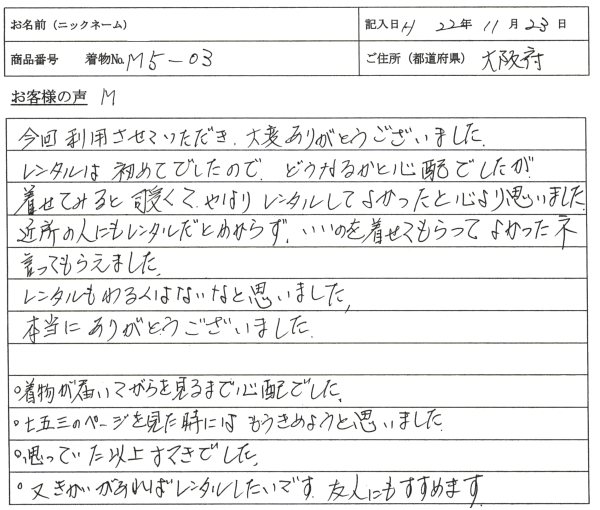 お名前（ニックネーム）
記入日 H 22年 11月 23日
商品番号 着物No. M5-03
ご住所（都道府県） 大阪府
お客様の声 M
今回利用させていただき、大変ありがとうございました。
レンタルは初めてでしたので、どうなるかと心配でしたが
着せてみると可愛くて、やはりレンタルしてよかったと心より思いました。
近所の人にもレンタルだとわからず、いいのを着せてもらってよかったネ
言ってもらえました。
レンタルもわるくはないなと思いました。
本当にありがとうございました。
○着物が届いてがらを見るまで心配でした。
○七五三のページを見た時にはもうきめようと思いました。
○思っていた以上すてきでした。
○又きかいがあればレンタルしたいです。友人にもすすめます